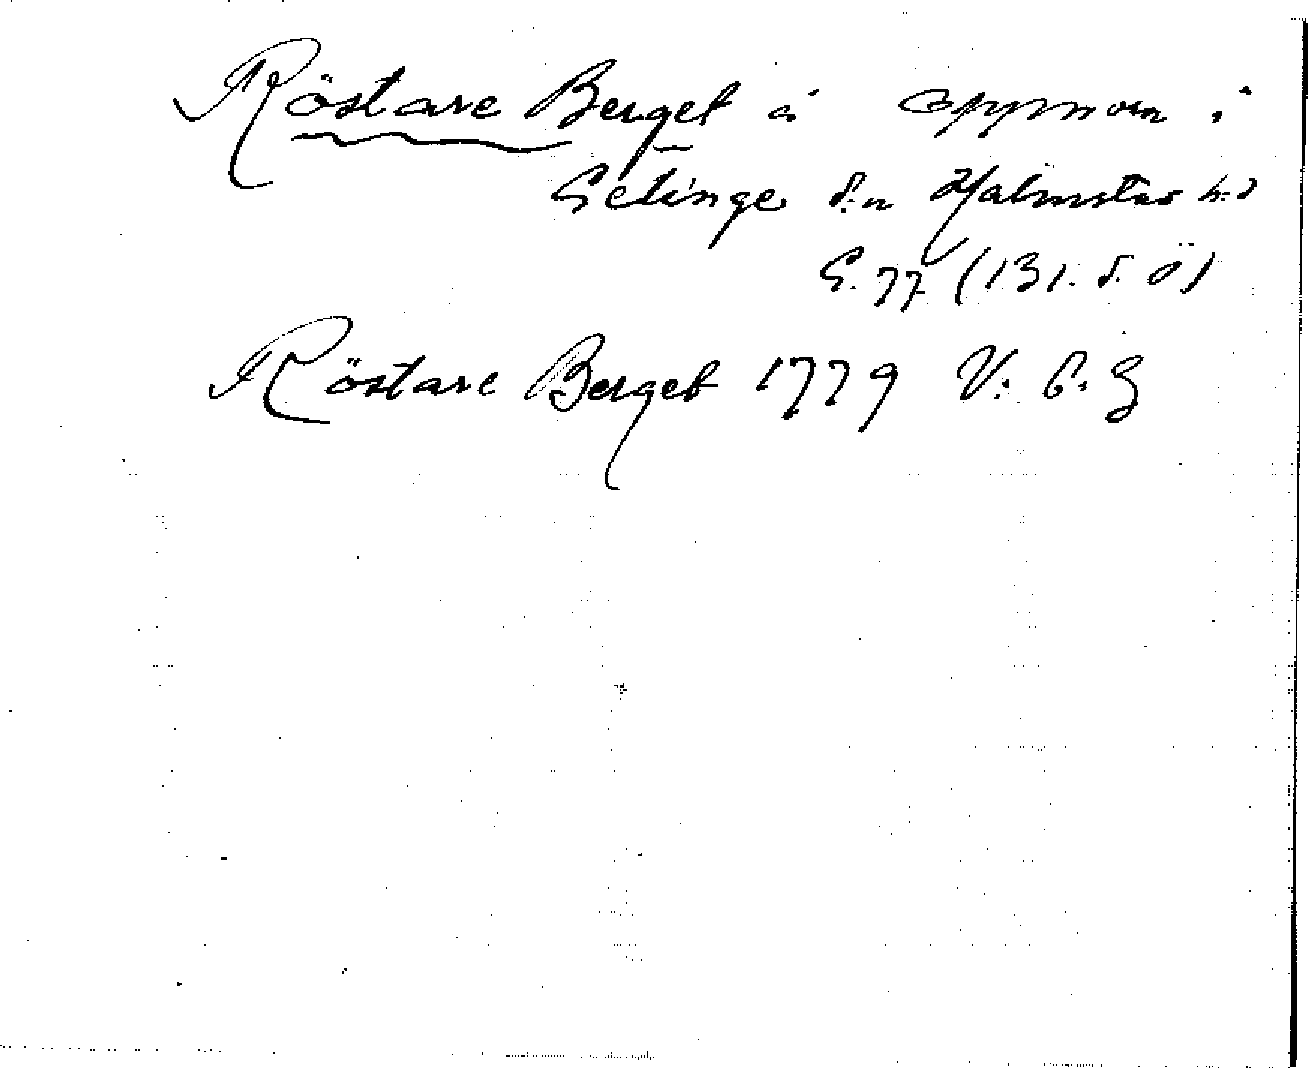 Röstare Berget å i
Getinge s:n Halmstad h:d
G. 77 (131. S. Ö)
Röstare Berget 1779 V: G. G